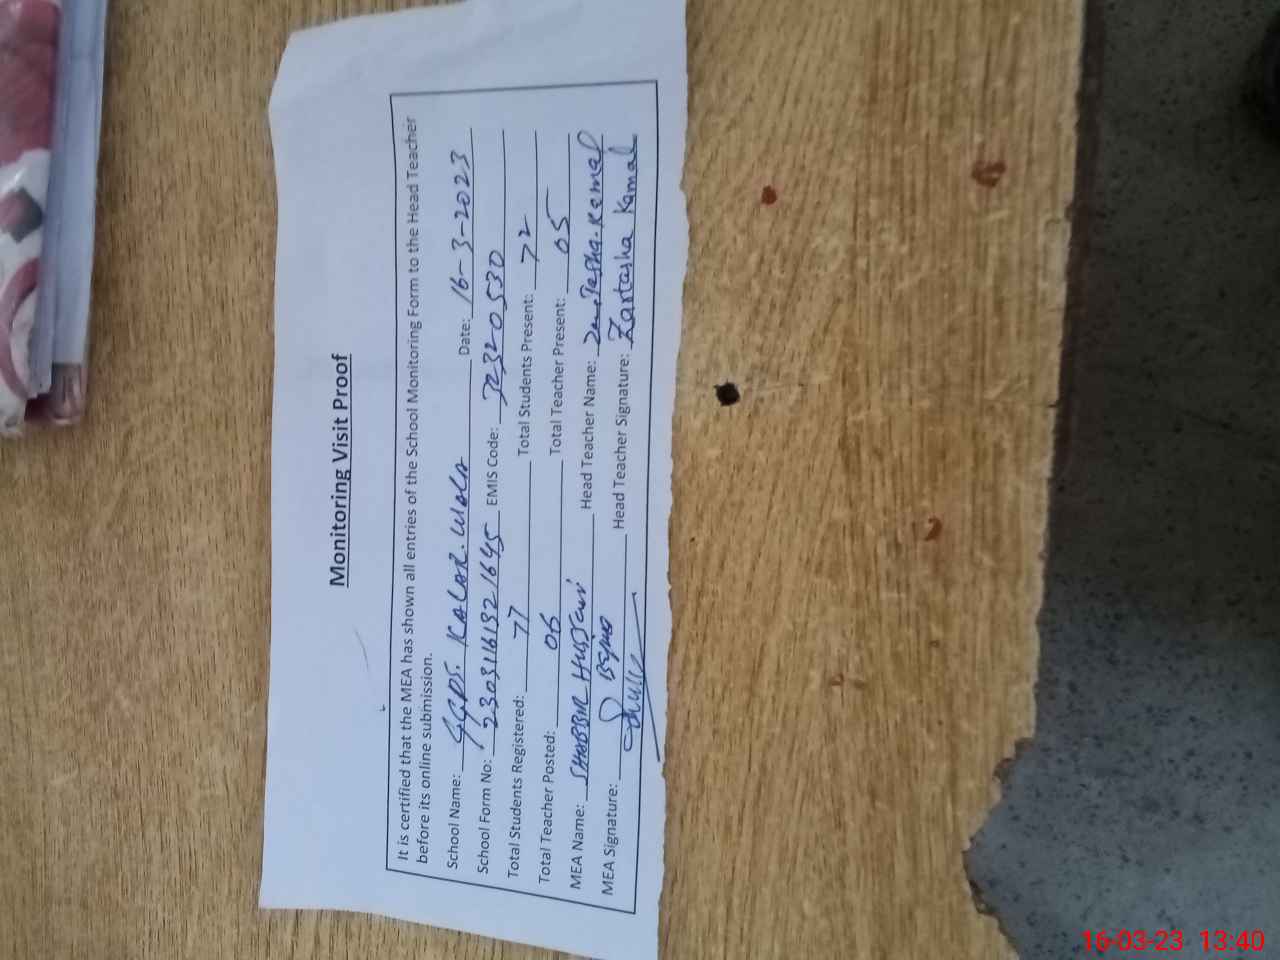 Monitoring Visit Proof
It is certified that the MEA has shown all entries of the School Monitoring Form to the Head Teacher
before its online submission.
School Name: GGPS. KALAR. WALA Date: 16-3-2023
School Form No: 2303161321645 EMIS Code: 32320530
Total Students Registered: 77 Total Students Present: 72
Total Teacher Posted: 06 Total Teacher Present: 05
MEA Name: SHABBIR HUSSAIN Head Teacher Name: Kemal
MEA Signature: Head Teacher Signature: Zartasha Kamal
16-03-23 13:40